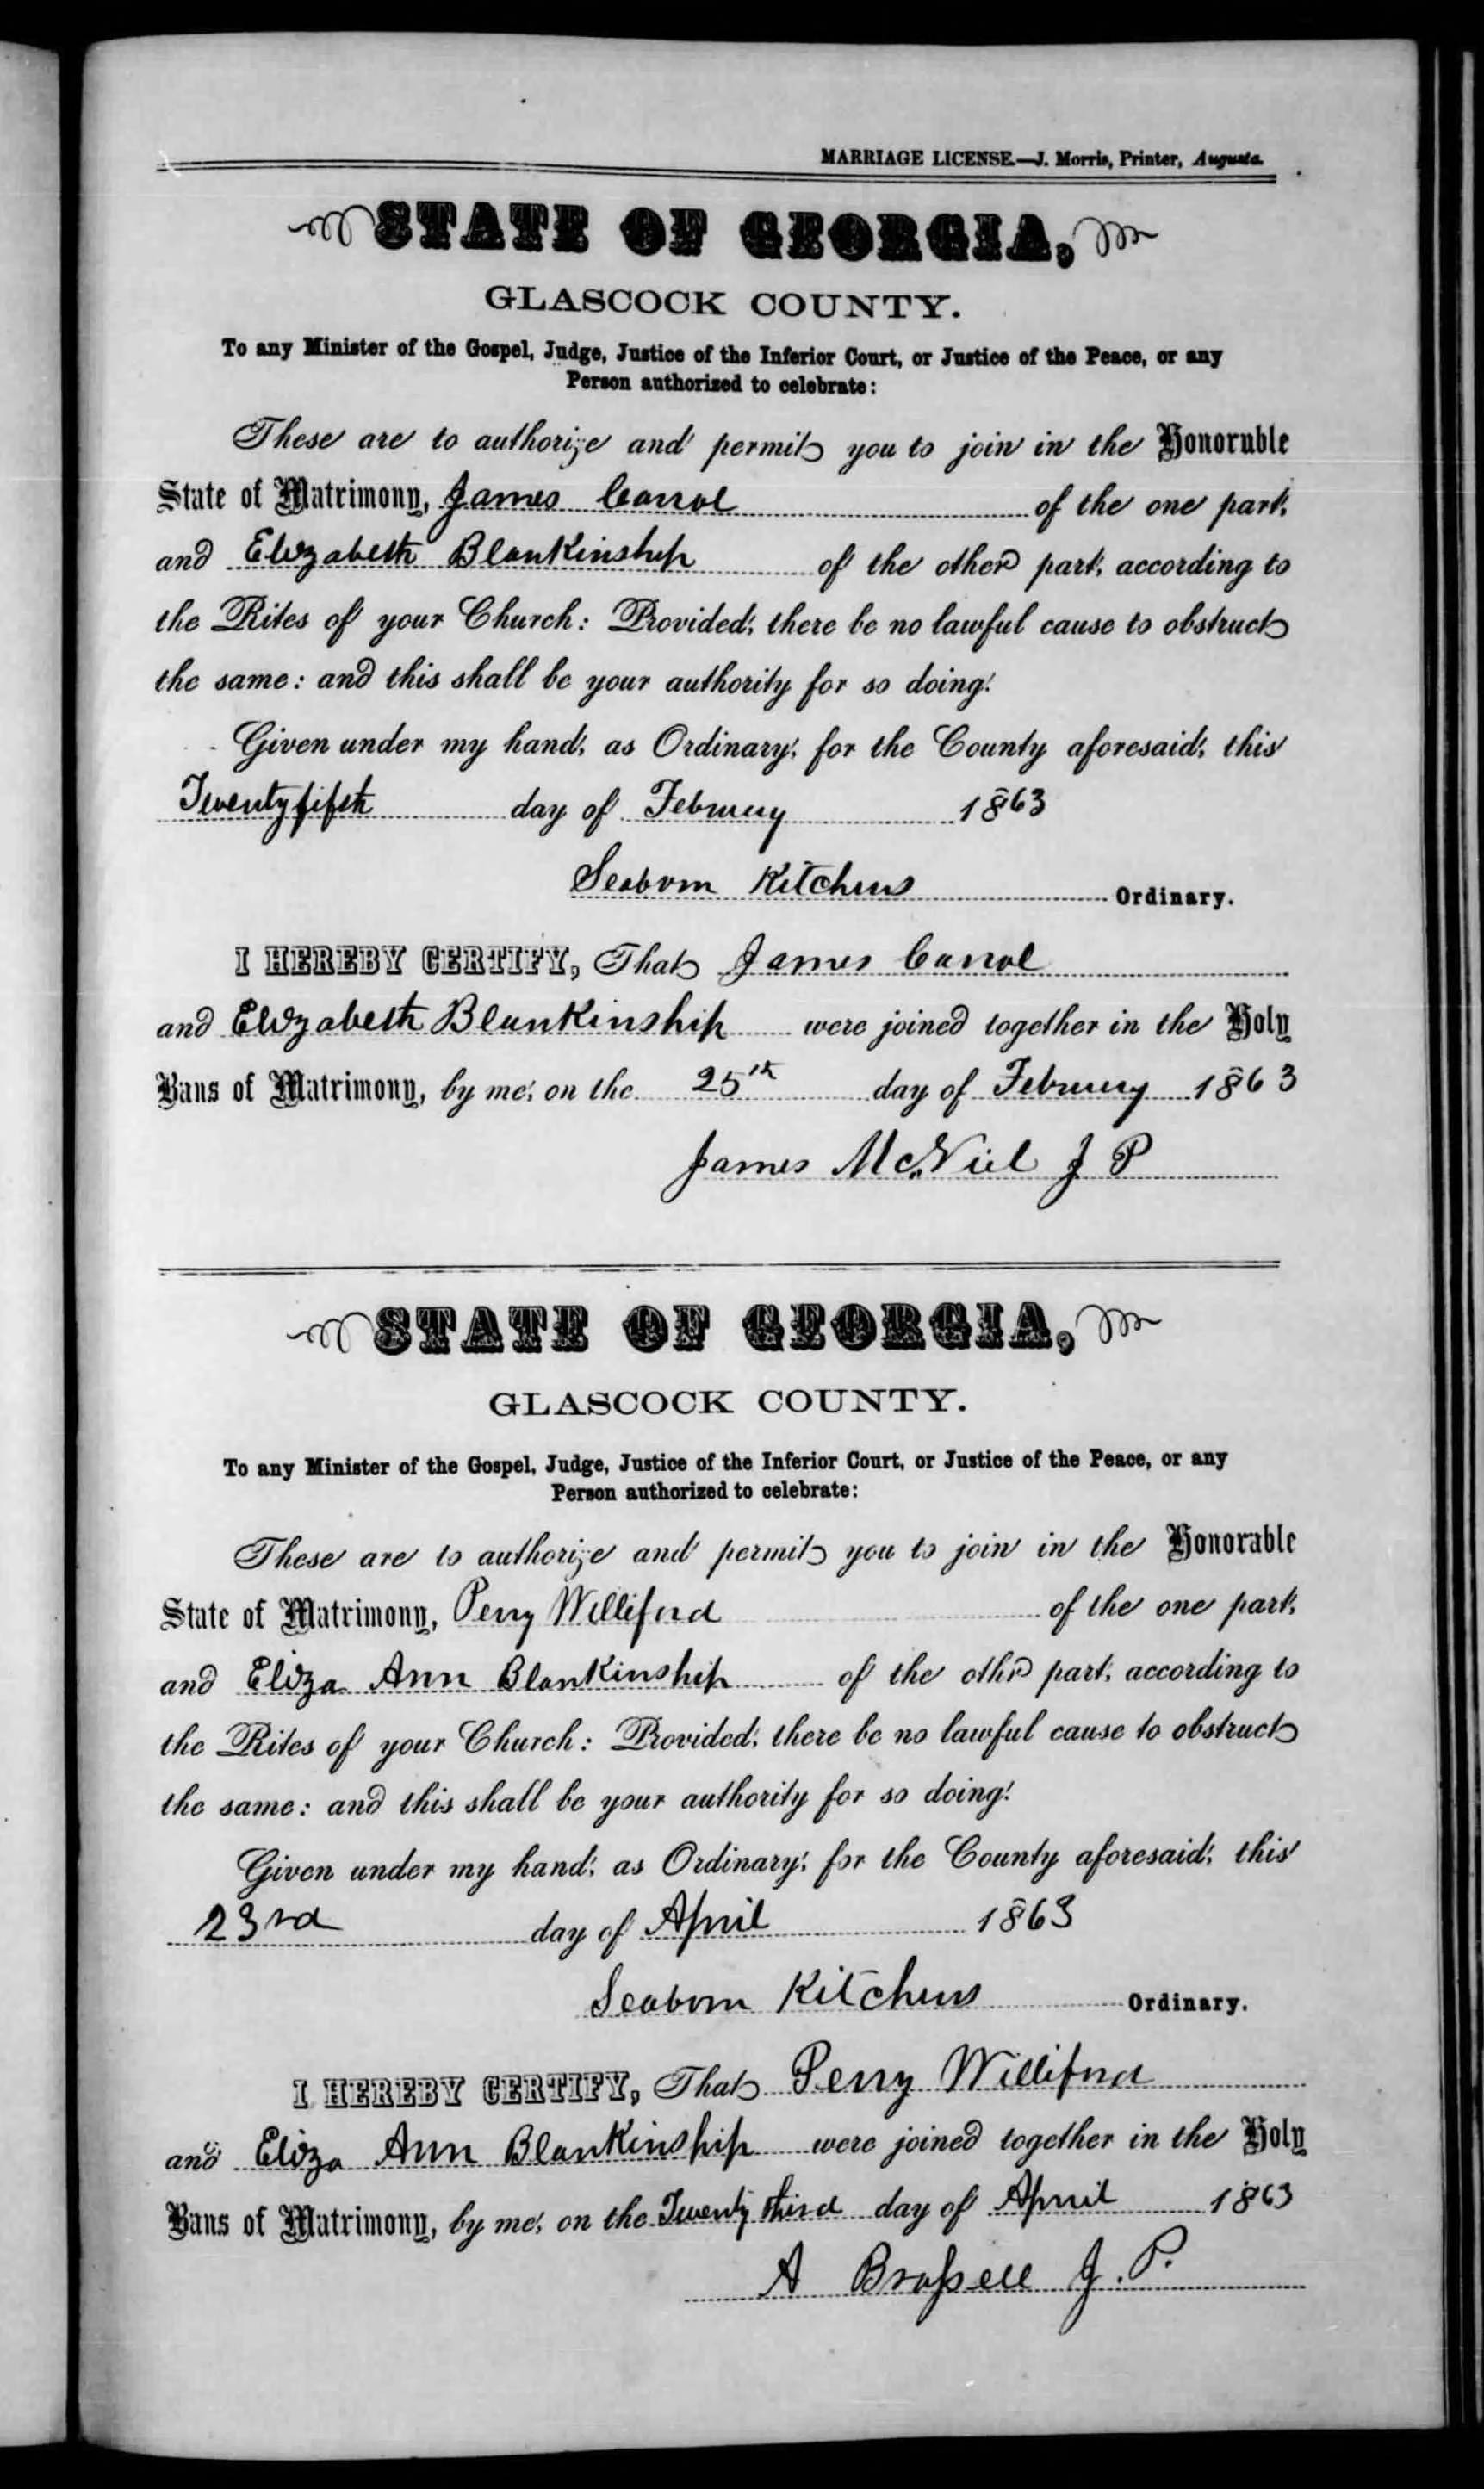 MARRIAGE LICENSE.—J. Morris, Printer, Augusta.
STATE OF GEORGIA,
GLASCOCK COUNTY.
To any Minister of the Gospel, Judge, Justice of the Inferior Court, or Justice of the Peace, or any
Person authorized to celebrate:
These are to authorize and permit you to join in the Honorable
State of Matrimony, James Carrol of the one part,
and Elizabeth Blankinship of the other part, according to
the Rites of your Church: Provided, there be no lawful cause to obstruct
the same: and this shall be your authority for so doing.
Given under my hand, as Ordinary, for the County aforesaid, this
Twenty fifth day of Februry 1863
Seaborn Kitchens Ordinary.
I HEREBY CERTIFY, That James Carrol
and Elizabeth Blankinship were joined together in the Holy
Bans of Matrimony, by me, on the 25th day of Februry 1863
James McNiel J P
STATE OF GEORGIA,
GLASCOCK COUNTY.
To any Minister of the Gospel, Judge, Justice of the Inferior Court, or Justice of the Peace, or any
Person authorized to celebrate:
These are to authorize and permit you to join in the Honorable
State of Matrimony, Perry Williford of the one part,
and Eliza Ann Blankinship of the othr part, according to
the Rites of your Church: Provided, there be no lawful cause to obstruct
the same: and this shall be your authority for so doing.
Given under my hand, as Ordinary, for the County aforesaid, this
23rd day of April 1863
Seaborn Kitchens Ordinary.
I HEREBY CERTIFY, That Perry Williford
and Eliza Ann Blankinship were joined together in the Holy
Bans of Matrimony, by me, on the Twenty third day of April 1863
A Brassell J. P.